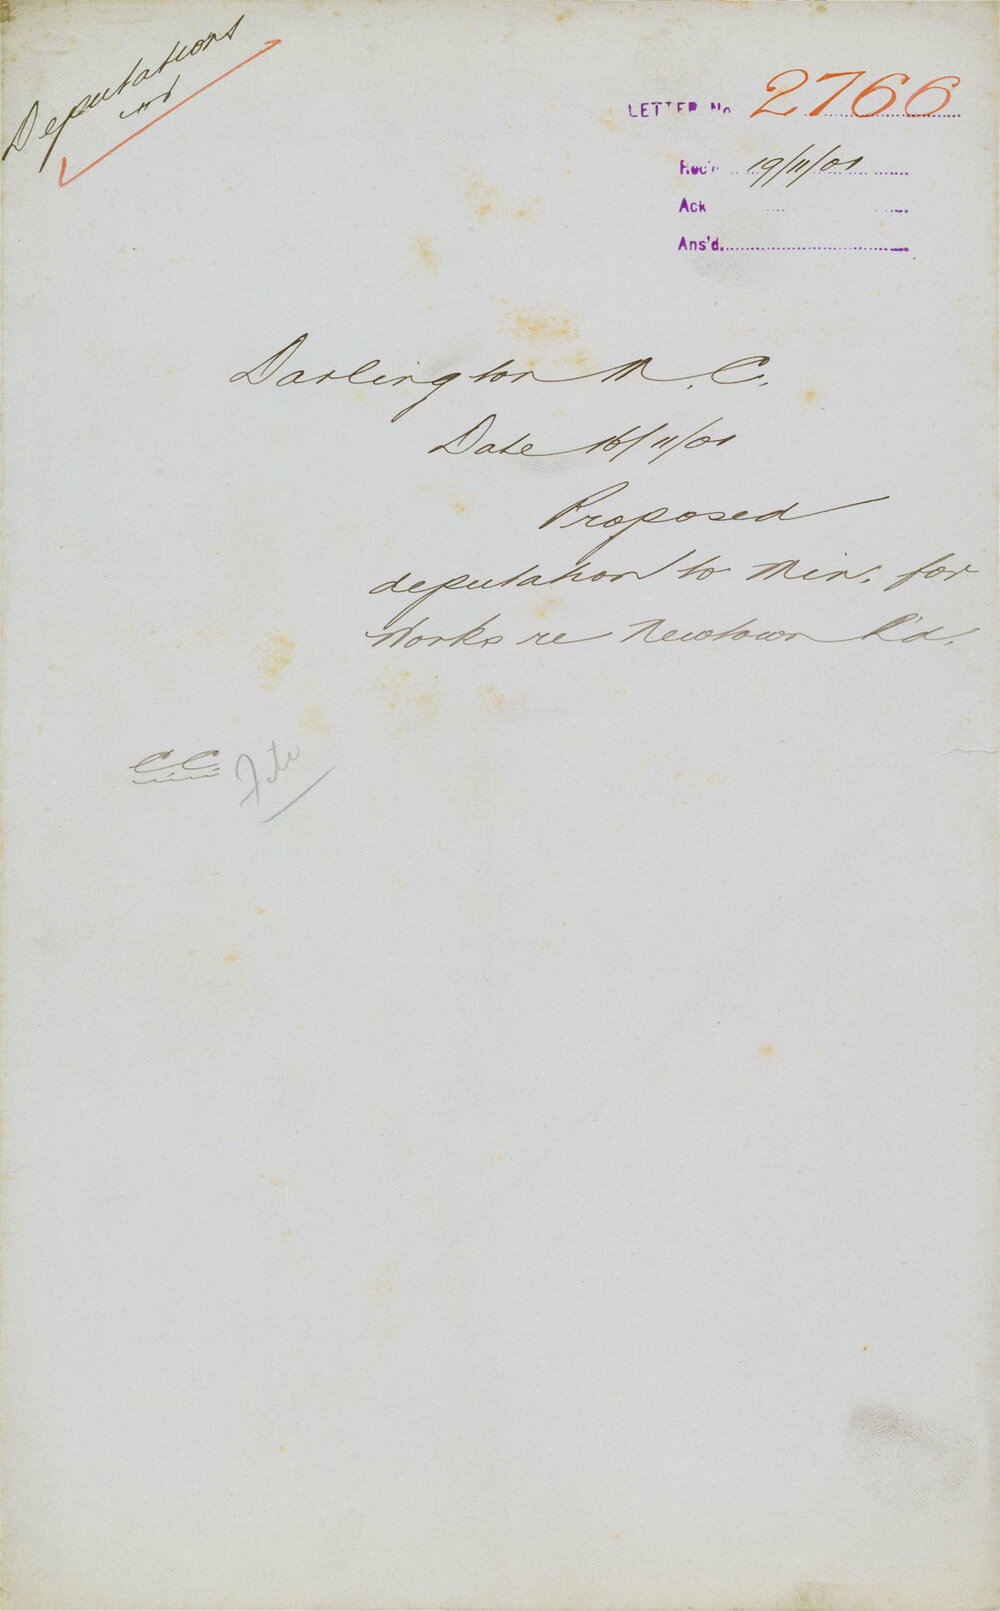 Deputations
LETTER No 2766
Rec'd 19/11/01
Ack
Ans'd
Darlington M. C.
Date 16/11/01
Proposed
deputation to Min. for
Works re Newtown R'd.
C.C. File